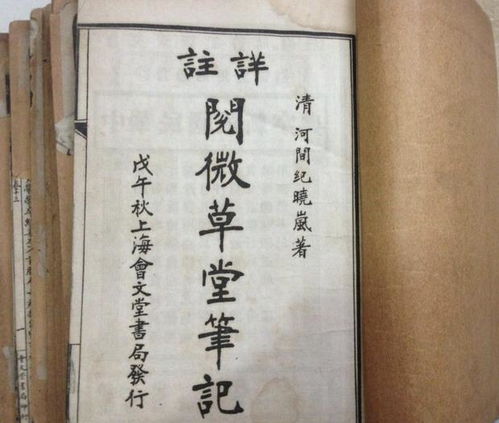 詳註
清 河間紀曉嵐著
閱微草堂筆記
戊午秋上海會文堂書局發行